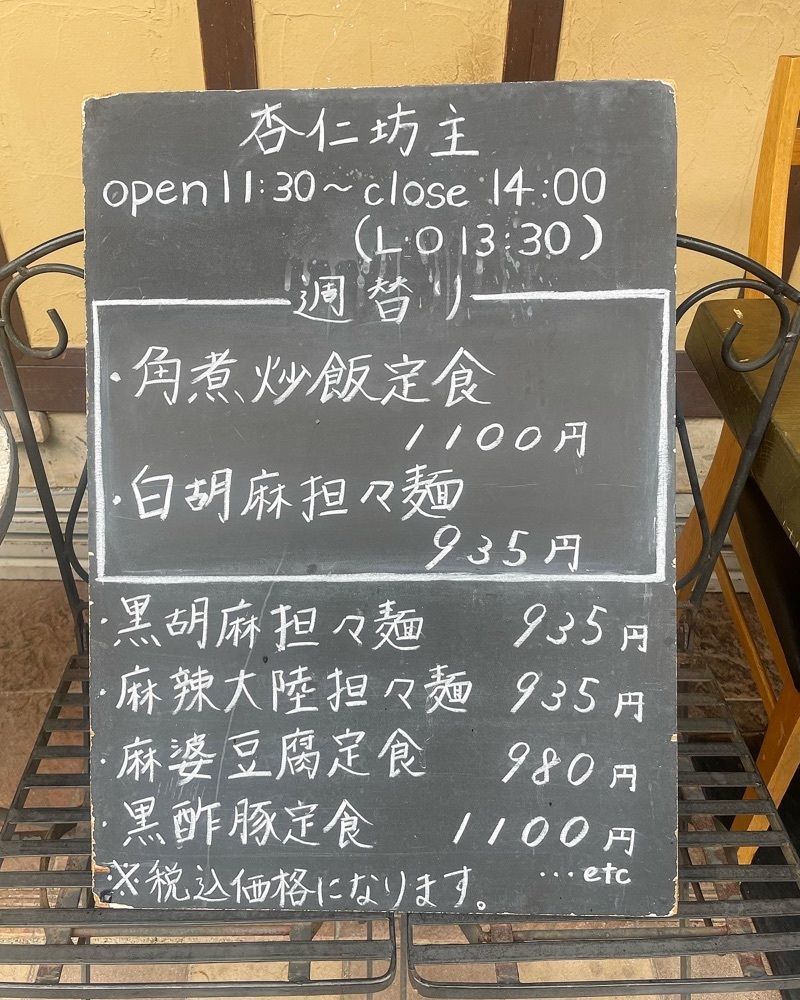 杏仁坊主
open 11:30～close 14:00
(L O 13:30)
週替り
・角煮炒飯定食
1100円
・白胡麻担々麺
935円
・黒胡麻担々麺 935円
・麻辣大陸担々麺 935円
・麻婆豆腐定食 980円
・黒酢豚定食 1100円
…etc
※税込価格になります。